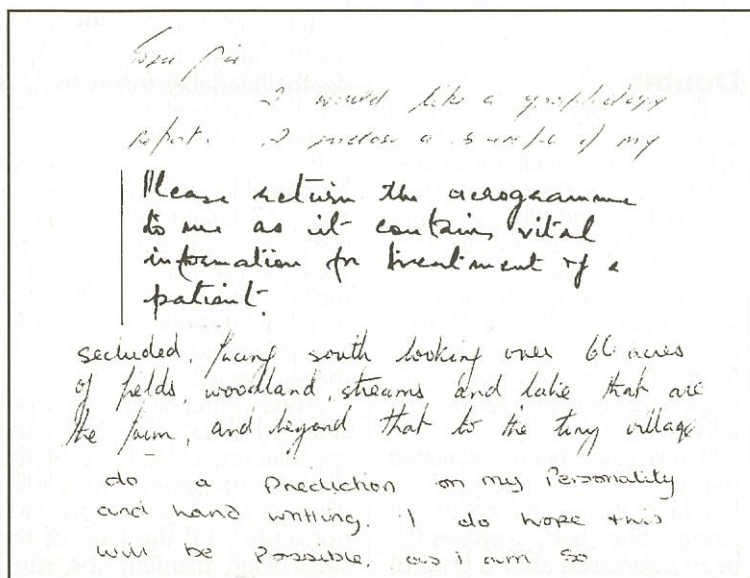 Dear Sir
I would like a graphology
report. I enclose a sample of my
Please return the aerogramme
to me as it contains vital
information for treatment of a
patient.
secluded, facing south looking over 61 acres
of fields, woodland, streams and lake that are
the farm, and beyond that to the tiny village
do a Prediction on my Personality
and hand writing. I do hope this
will be Possible. as i am so